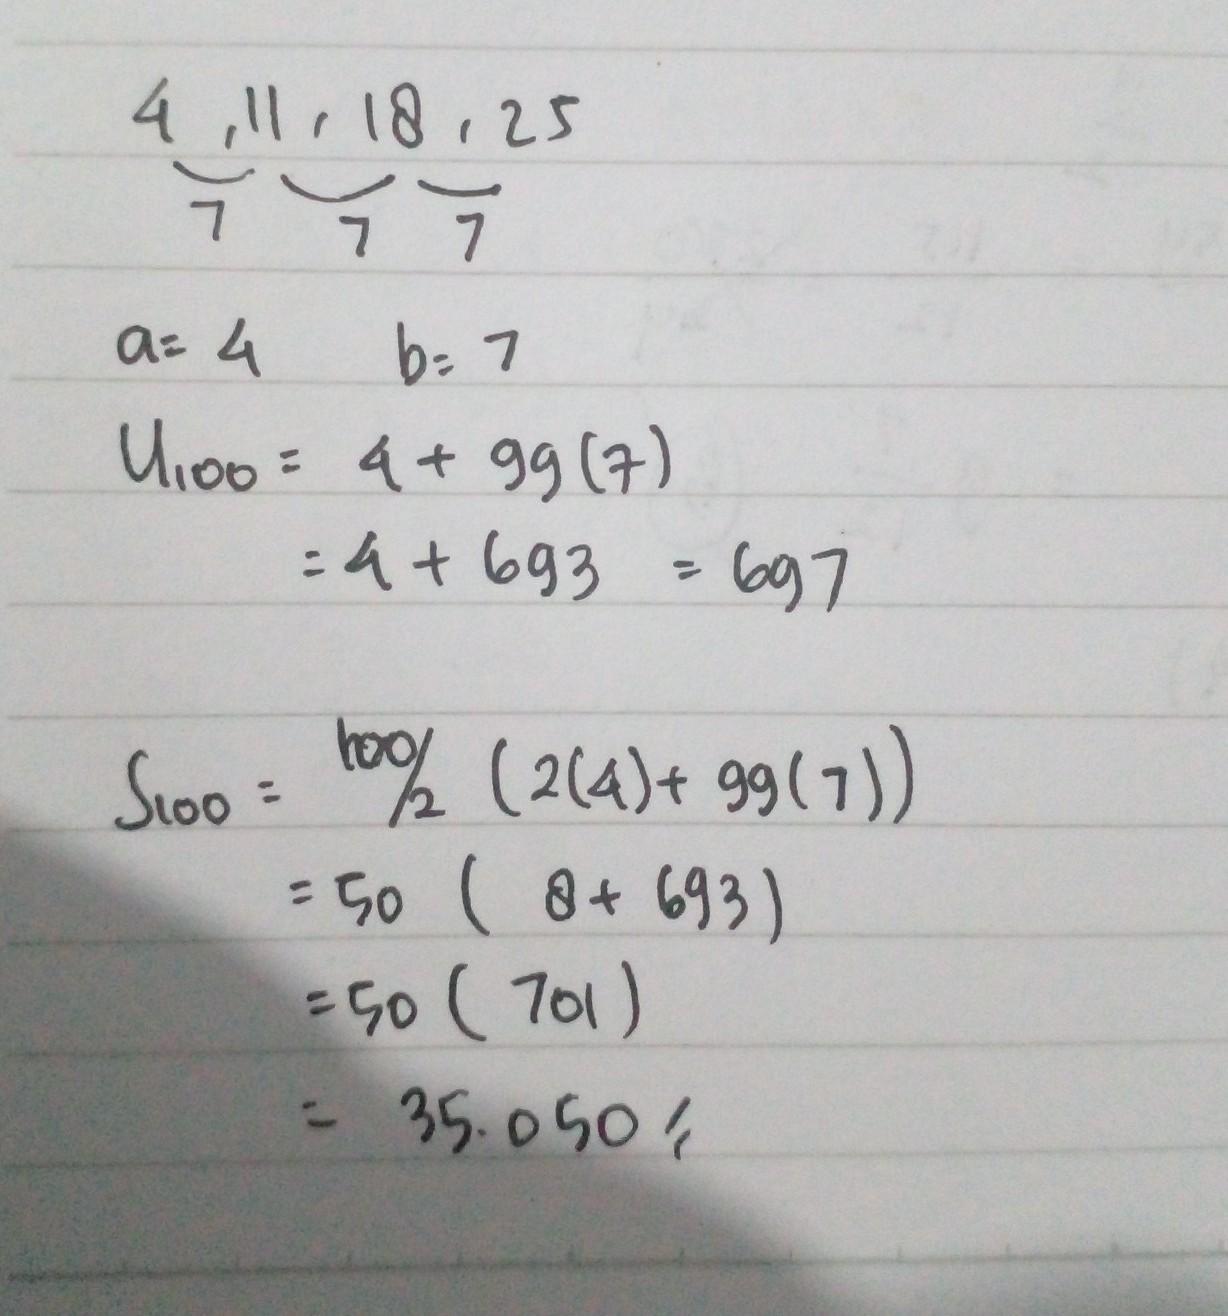 4, 11, 18, 25
7 7 7
a= 4 b= 7
U100 = 4 + 99 (7)
= 4 + 693 = 697
S100 = 100/2 (2(4)+ 99(7))
= 50 ( 8 + 693)
= 50 ( 701)
= 35.050